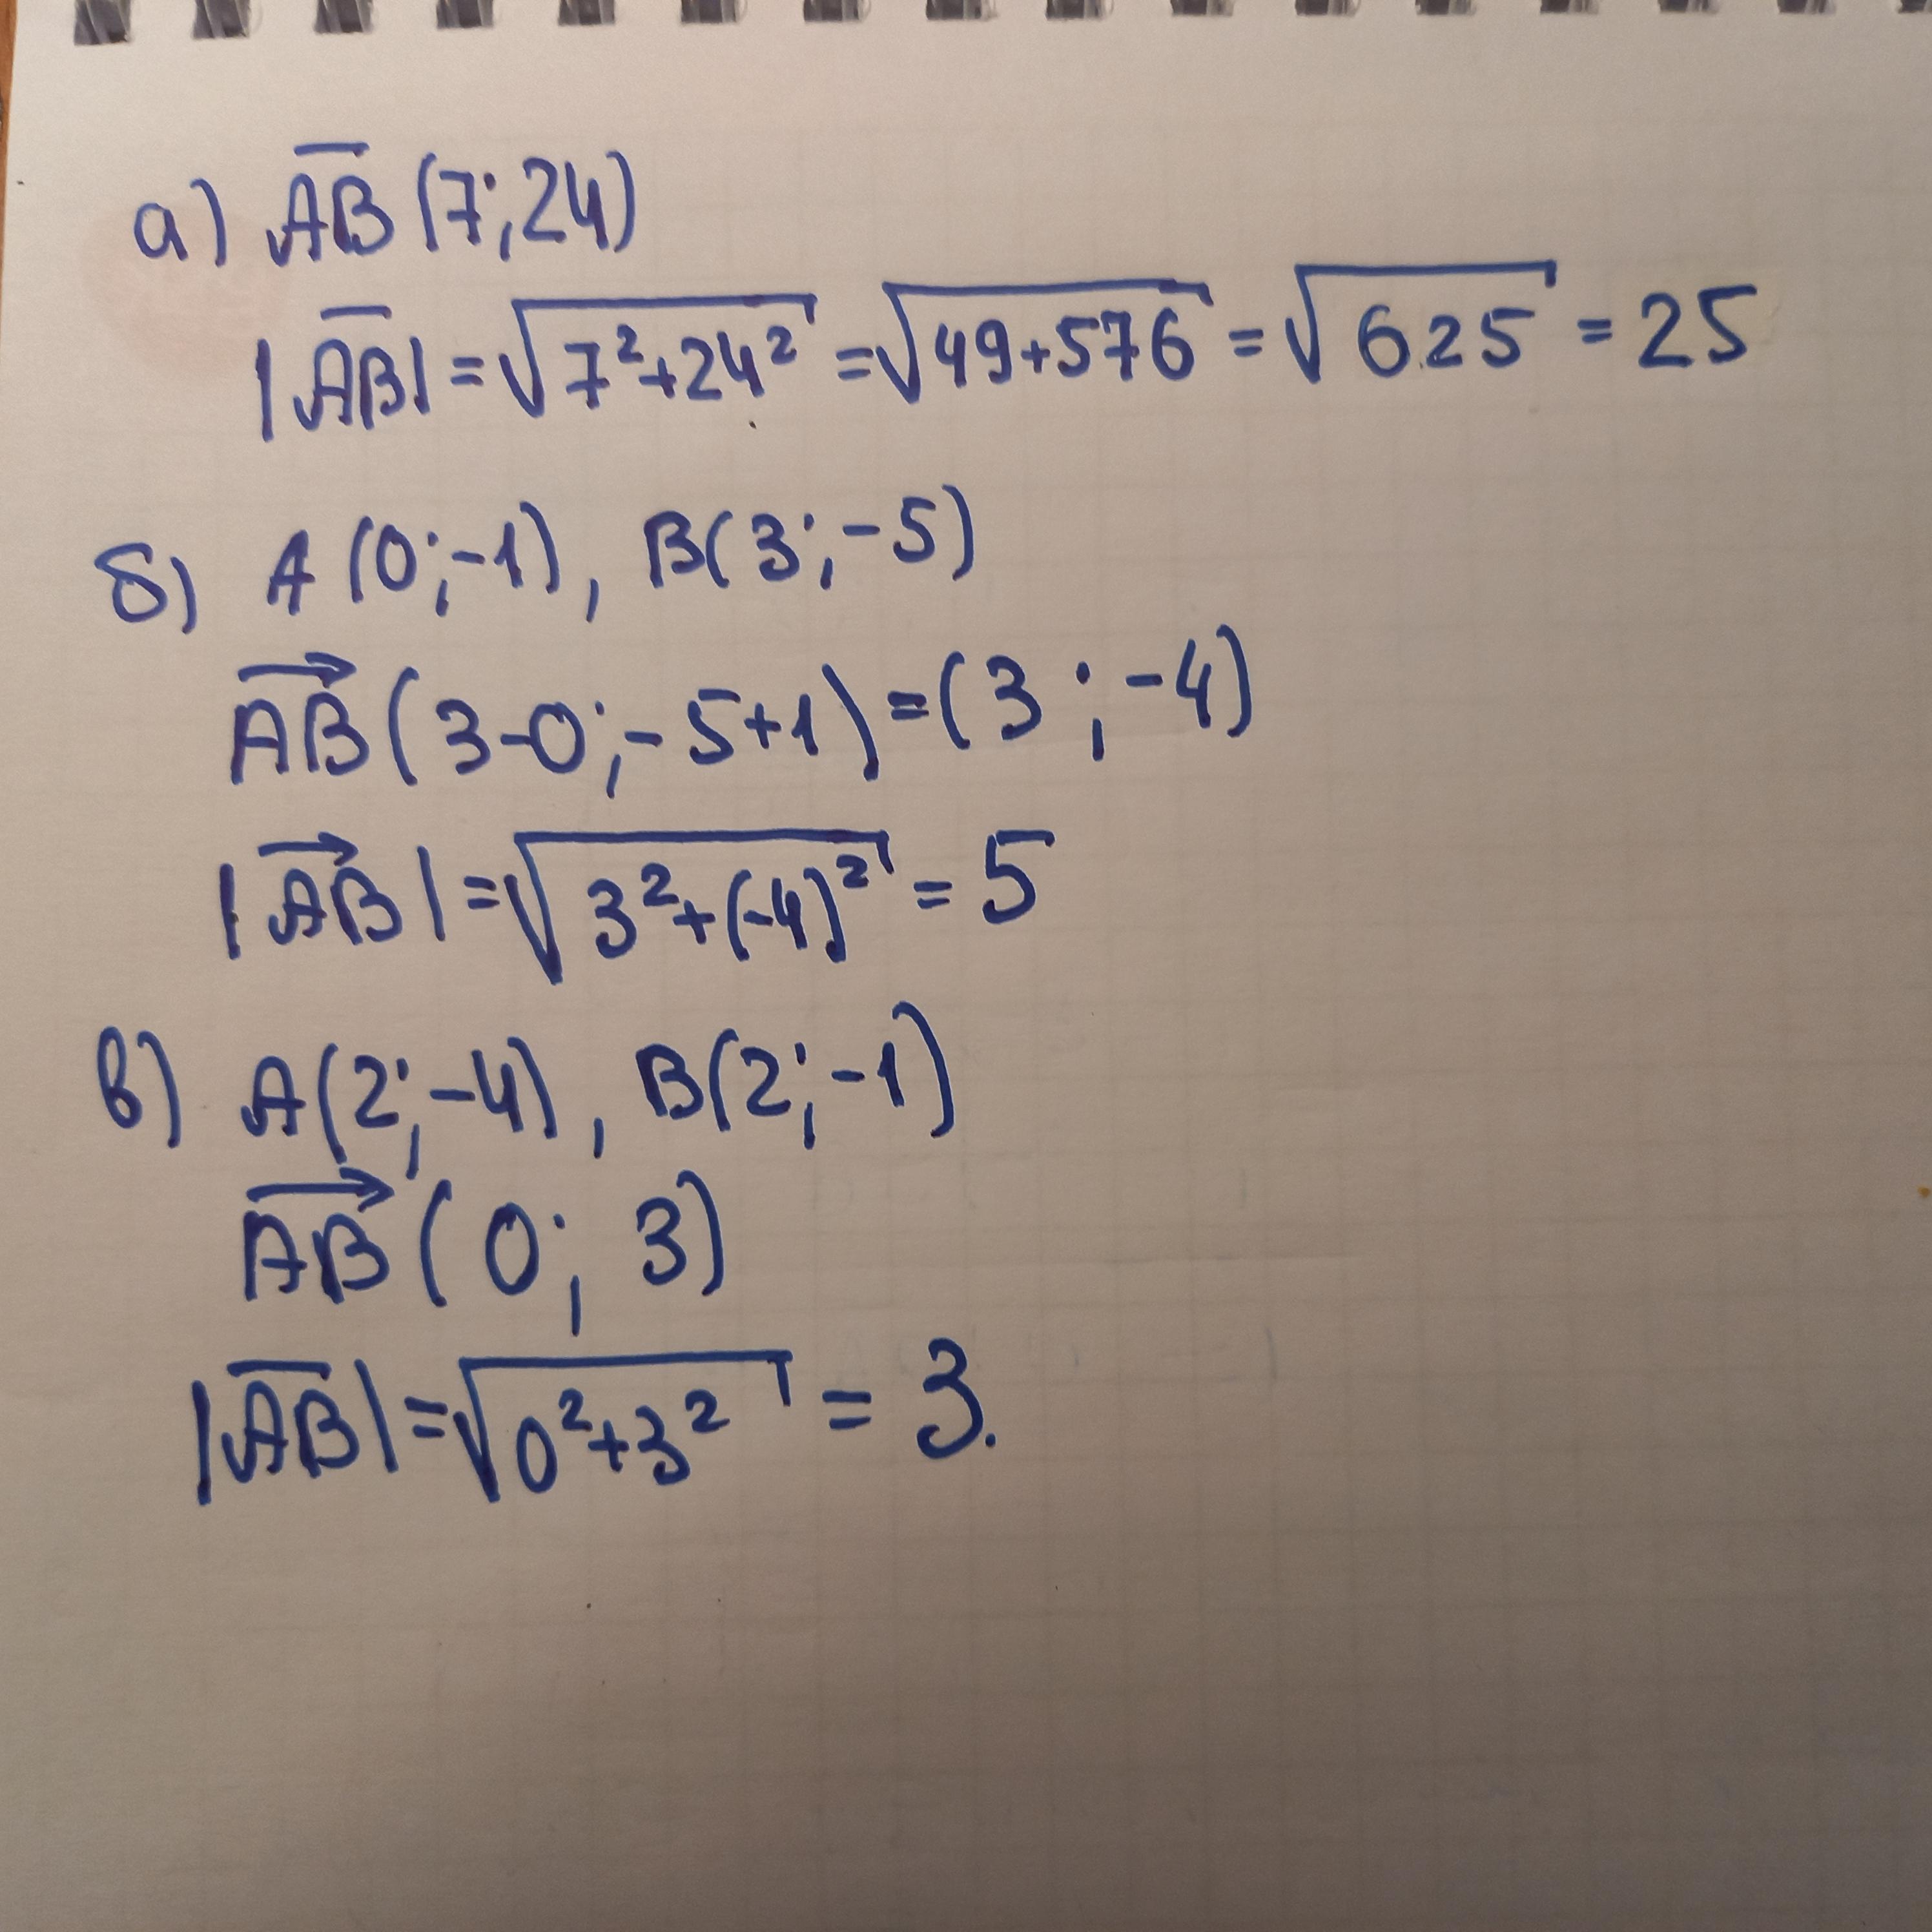 а) A̅B̅ (7; 24)
|A̅B̅| = √(7²+24²) = √(49+576) = √625 = 25
б) A (0; -1), B(3; -5)
A⃗B⃗ (3-0; -5+1) = (3 ; -4)
|A⃗B⃗| = √(3²+(-4)²) = 5
в) A(2; -4), B(2; -1)
A⃗B⃗ (0; 3)
|A̅B̅| = √(0²+3²) = 3.